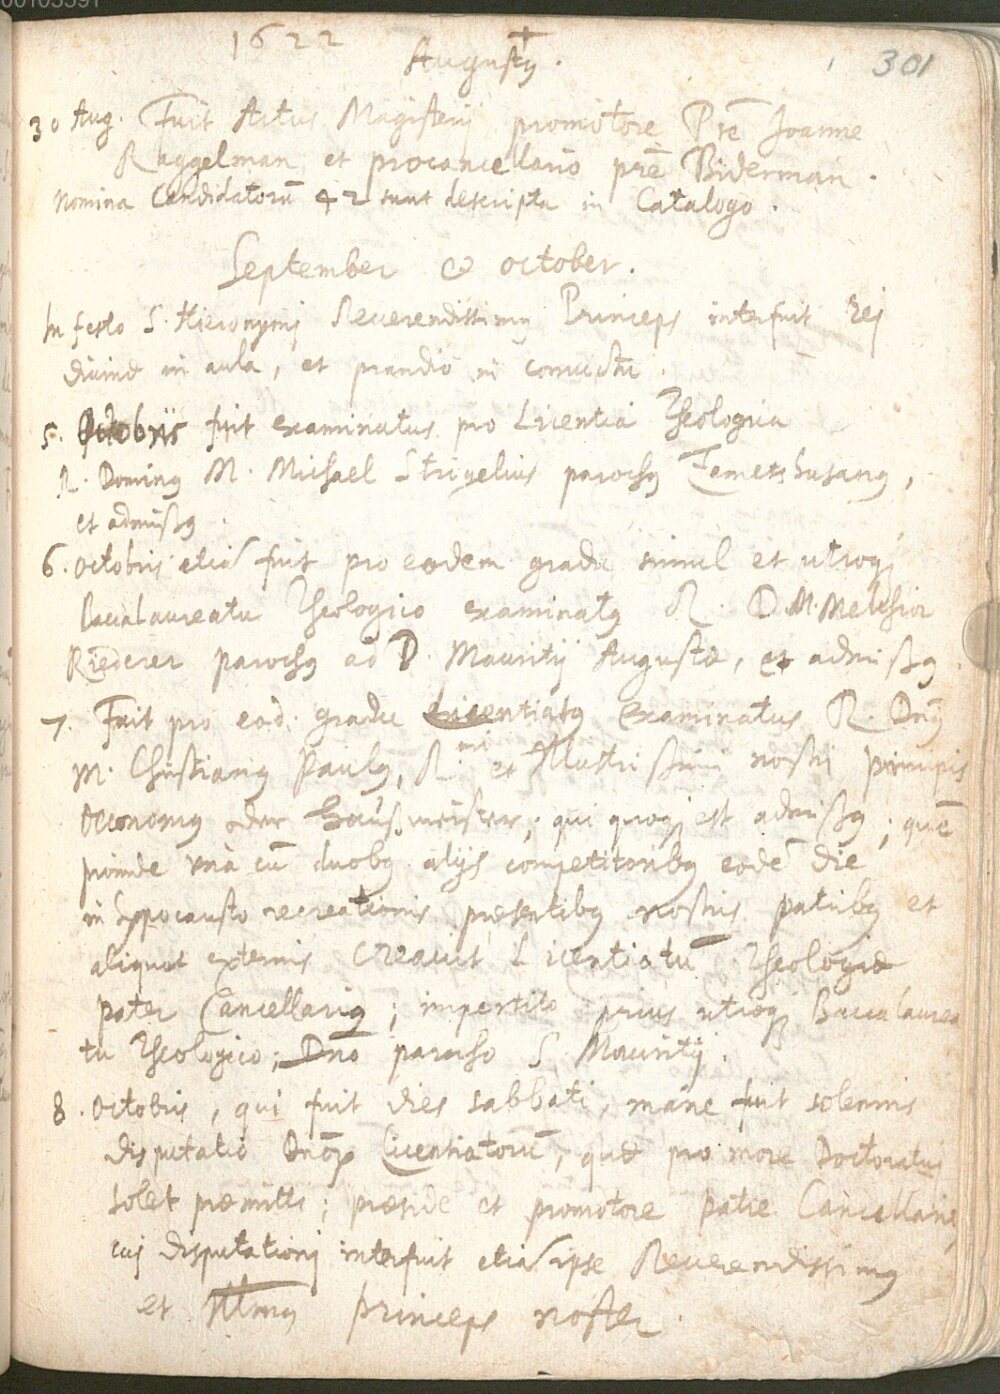 00105591
1622
Augustꝰ.
301
30 Aug. Fuit Actus Magisterij promotore Pre Joanne
Raggelman, et procancellario pre Biderman.
Nomina Candidatorũ 42 sunt descripta in Catalogo.
September & october.
In festo S. Hieronymj Reuerendissimꝰ Princeps interfuit rej
diuinæ in aula, et prandio in conuictu.
5. Octobris fuit examinatus pro Licentia Theologica
R. Dominꝰ M. Michael Strigelius parochꝰ
et admißꝰ.
6. octobris etiã fuit pro eodem gradu simul et utroq;
Baccalaureatu Theologico examinatꝰ R. D. M. Melchior
Riederer parochꝰ ad D. Mauritij Augustæ, et admißꝰ.
7. Fuit pro eod. gradu Licentiatꝰ examinatus R. Dnꝰ
M. Christianꝰ Paulꝰ, R.mi et Illustrißimi nostri principis
Oeconomꝰ oder Haußmeister; qui quoq; est admißꝰ; quẽ
proinde vnà cũ duobꝰ alijs competitoribꝰ eodẽ die
in hypocausto recreationis præsentibꝰ nostris patribꝰ et
aliquot externis creauit Licentiatũ Theologiæ
pater Cancellariꝰ; impertito prius utroq; Baccalaurea
tu Theologico, Dno parocho S. Mauritij.
8. octobris, qui fuit dies sabbati, mane fuit solennis
disputatio Dnorũ Licentiatorũ, quæ pro more Doctoratuj
solet præmitti; præside et promotore patre Cancellario,
cuj disputationj interfuit etiã ipse Reuerendissimꝰ
et Illmꝰ princeps noster.